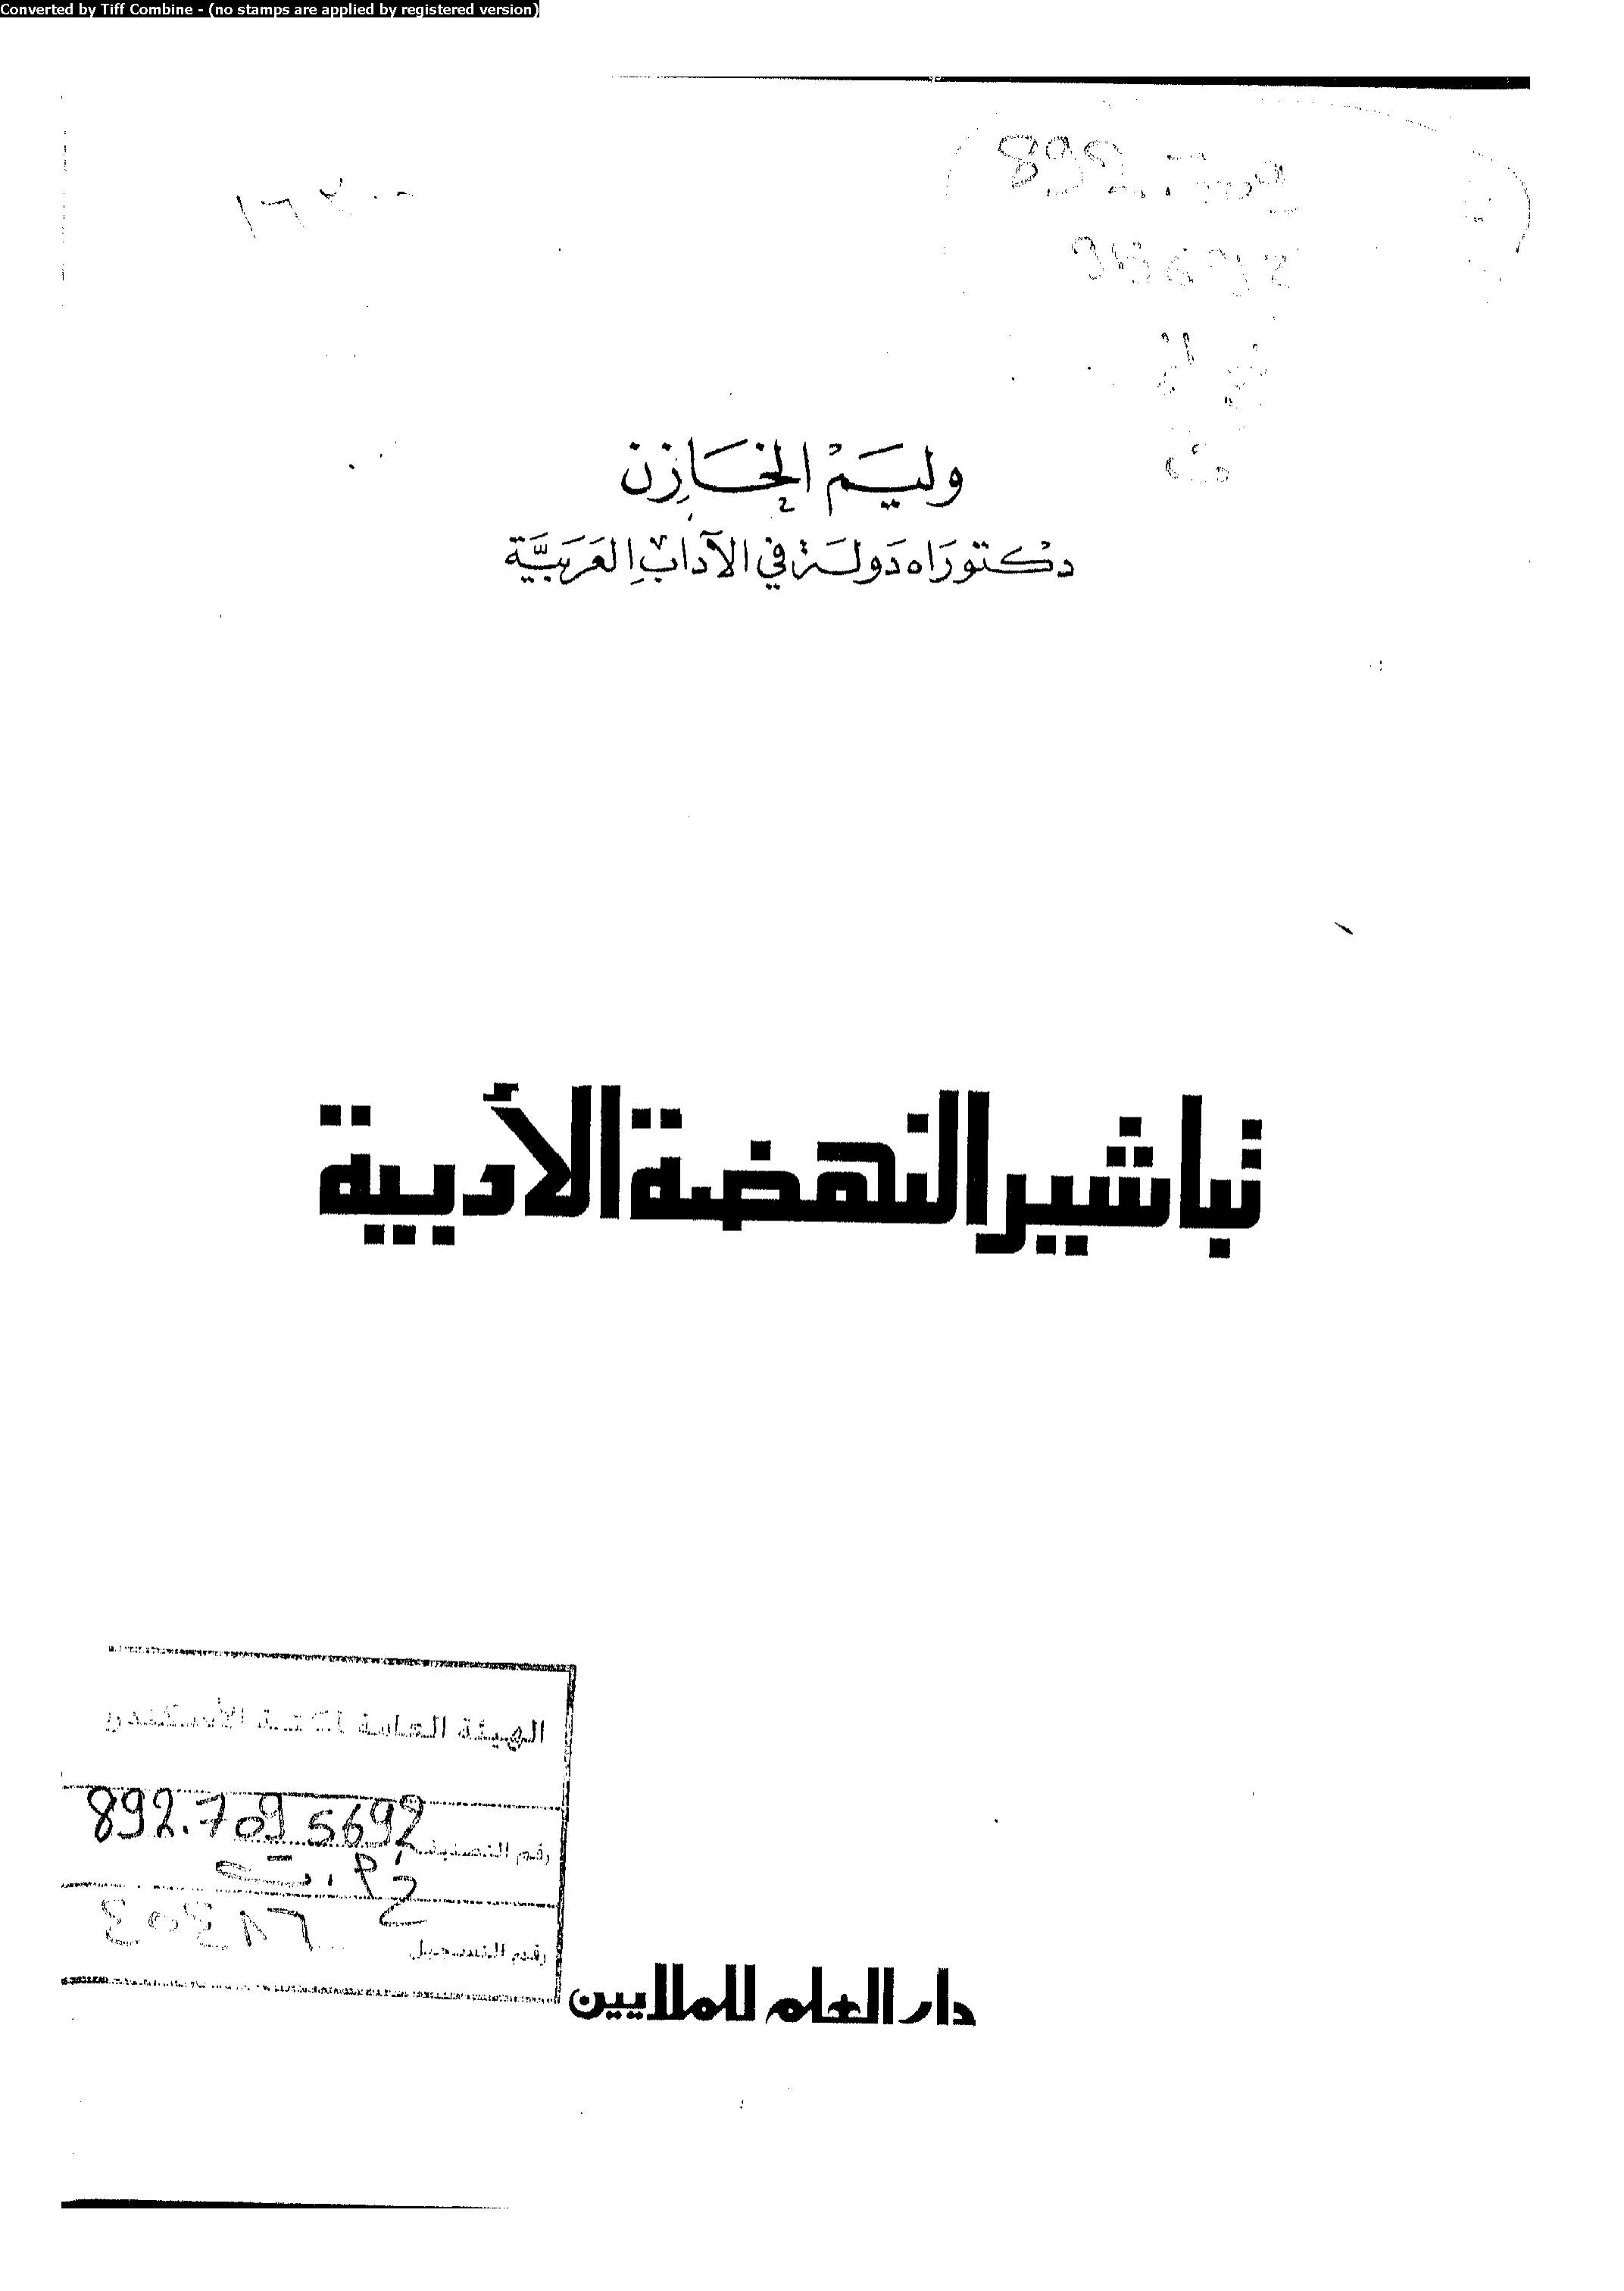 Converted by Tiff Combine - (no stamps are applied by registered version)
وليَمْ الخَازِن
دكتورَاه دَولَة في الآدابِ العَرَبيَّة
تباشير النهضة الأدبية
الهيئة العامة
892.709 5692
رقم التصنيف
رقم التسجيل
دار العلم للملايين